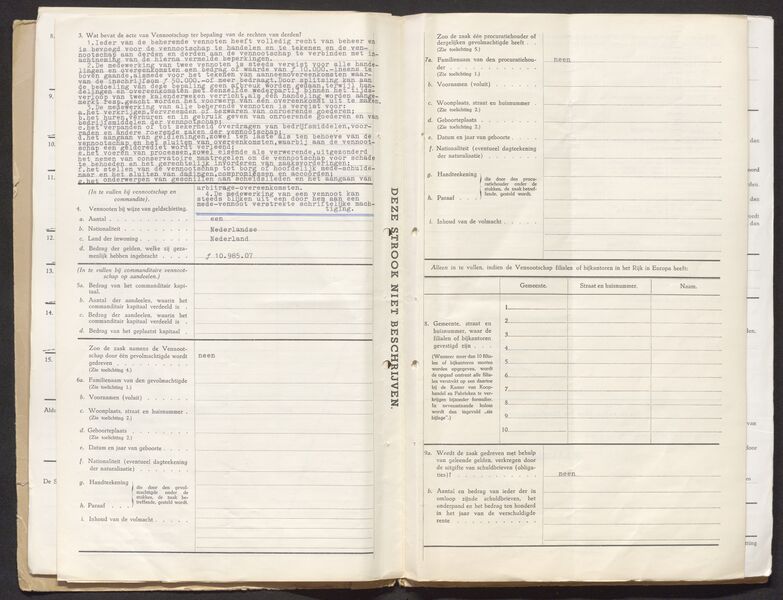 3. Wat bevat de acte van Vennootschap ter bepaling van de rechten van derden?
1.Ieder van de beherende vennoten heeft volledig recht van beheer en
is bevoegd voor de vennootschap te handelen en te tekenen en de ven-
nootschap aan derden en derden aan de vennootschap te verbinden met in-
achtneming van de hierna vermelde beperkingen.
2.De medewerking van twee vennoten is steeds vereist voor alle hande-
lingen en overeenkomsten een bedrag of waarde van ƒ 10.000.-ineens te
boven gaande, alsmede voor het tekenen van aannemovereenkomsten waar-
van de inschrijfsom ƒ 50.000.-of meer bedraagt. Door splitsing kan aan
de bedoeling van deze bepaling geen afbreuk worden gedaan, terwijl han-
delingen en overeenkomsten met dezelfde wederpartij binnen het tijds-
verloop van twee kalenderweken verricht, als één handeling worden aange-
merkt resp. geacht worden het voorwerp van één overeenkomst uit te maken.
3.De medewerking van alle beherende vennoten is vereist voor:
a.het verkrijgen, vervreemden of bezwaren van onroerende goederen;
b.het huren, verhuren en in gebruik geven van onroerende goederen en van
bedrijfsmiddelen der vennootschap;
c.het verpanden of tot zekerheid overdragen van bedrijfsmiddelen, voor-
raden en andere roerende zaken der vennootschap;
d.het aangaan van geldleningen, zowel ten laste als ten behoeve van de
vennootschap en het sluiten van overeenkomsten, waarbij aan de vennoot-
schap een geldcrediet wordt verleend;
e.het voeren van processen, zowel eisende als verwerende, uitgezonderd
het nemen van conservatoire maatregelen om de vennootschap voor schade
te behoeden en het gerechtelijk invorderen van zaaksvorderingen;
f.het stellen van de vennootschap tot borg of hoofdelijk mede-schulde-
naar en het sluiten van dadingen, compromissen en accoorden;
g.het onderwerpen van geschillen aan scheidslieden en het aangaan van
arbitrage-overeenkomsten.
4.De medewerking van een vennoot kan
steeds blijken uit een door hem aan een
mede-vennoot verstrekte schriftelijke mach-
tiging.
(In te vullen bij vennootschap en
commandite).
4. Vennooten bij wijze van geldschieting.
a. Aantal een
b. Nationaliteit Nederlandse
c. Land der inwoning Nederland
d. Bedrag der gelden, welke zij geza-
menlijk hebben ingebracht ƒ 10.985.07
(In te vullen bij commanditaire vennoot-
schap op aandeelen.)
5a. Bedrag van het commanditaire kapi-
taal.
b. Aantal der aandeelen, waarin het
commanditair kapitaal verdeeld is
c. Bedrag der aandeelen, waarin het
commanditair kapitaal verdeeld is
d. Bedrag van het geplaatst kapitaal
Zoo de zaak namens de Vennoot-
schap door één gevolmachtigde wordt
gedreven neen
(Zie toelichting 4.)
6a. Familienaam van den gevolmachtigde
(Zie toelichting 1.)
b. Voornamen (voluit)
c. Woonplaats, straat en huisnummer
(Zie toelichting 2.)
d. Geboorteplaats
(Zie toelichting 2.)
e. Datum en jaar van geboorte
f. Nationaliteit (eventueel dagteekening
der naturalisatie)
g. Handteekening
h. Paraaf
die door den gevol-
machtigde onder de
stukken, de zaak be-
treffende, gesteld wordt.
i. Inhoud van de volmacht
DEZE STROOK NIET BESCHRIJVEN.
Zoo de zaak één procuratiehouder of
dergelijken gevolmachtigde heeft
(Zie toelichting 5.)
7a. Familienaam van den procuratiehou-
der neen
(Zie toelichting 1.)
b. Voornamen (voluit)
c. Woonplaats, straat en huisnummer
(Zie toelichting 2.)
d. Geboorteplaats
(Zie toelichting 2.)
e. Datum en jaar van geboorte
f. Nationaliteit (eventueel dagteekening
der naturalisatie)
g. Handteekening
h. Paraaf
die door den procu-
ratiehouder onder de
stukken, de zaak betref-
fende, gesteld wordt.
i. Inhoud van de volmacht
Alleen in te vullen, indien de Vennootschap filialen of bijkantoren in het Rijk in Europa heeft:
Gemeente. Straat en huisnummer. Naam.
8. Gemeente, straat en
huisnummer, waar de
filialen of bijkantoren
gevestigd zijn
(Wanneer meer dan 10 filia-
len of bijkantoren moeten
worden opgegeven, wordt
de opgaaf omtrent alle filia-
len verstrekt op een daartoe
bij de Kamer van Koop-
handel en Fabrieken te ver-
krijgen bijzonder formulier.
In nevenstaande kolom
wordt dan ingevuld „zie
bijlage”.)
1
2
3
4
5
6
7
8
9
10
9a. Wordt de zaak gedreven met behulp
van geleende gelden, verkregen door
de uitgifte van schuldbrieven (obliga-
ties)? neen
b. Aantal en bedrag van ieder der in
omloop zijnde schuldbrieven, het
onderpand en het bedrag ten honderd
in het jaar van de verschuldigde
rente
8.
9.
10.
11.
12.
13.
14.
15.